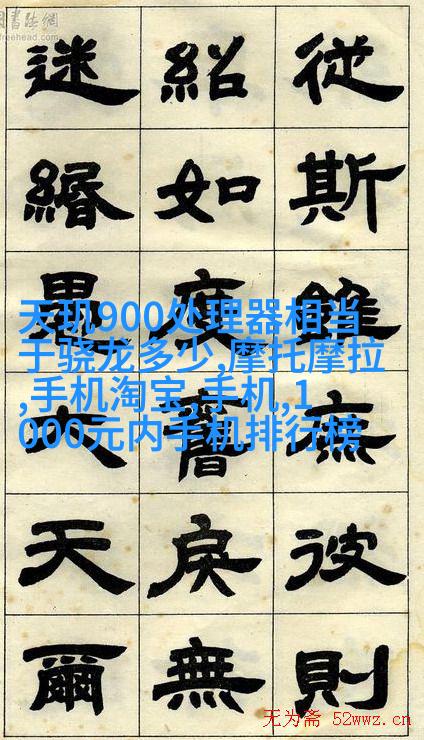 書法網
freehead.com
從斯
彼則
紹如度
戾無
迷緡
天爾
天玑900处理器相当
于骁龙多少,摩托摩拉
,手机淘宝,手机,1
000元内手机排行榜
无为斋 52wwz.cn